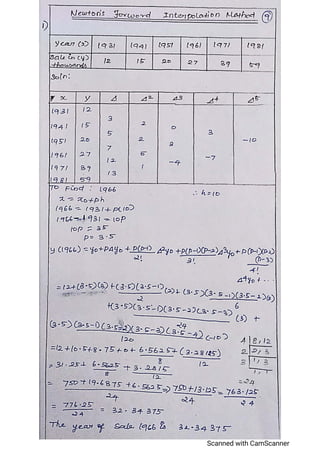 Newton's Forward Interpolation Method 9
1)
Year (x) 1931 1941 1951 1961 1971 1981
Sale in (y) thousands 12 15 20 27 39 59
Soln:
x y Δ Δ2 Δ3 Δ4 Δ5
1931 12
3
1941 15 2
5 0
1951 20 2 3
7 -10
1961 27 5 -7
12 -4
1971 39 1
13
1981 59
To find : 1966 ∴ h=10
x = x0+ph
1966 = 1931+p(10)
1966-1931 = 10p
10p = 35
p = 3.5
y(1966) = y0+pΔy0 + p(p-1)/2! Δ2y0 + p(p-1)(p-2)/3! Δ3y0 + p(p-1)(p-2)(p-3)/4! Δ4y0+...
=12+(3.5)(3)+(3.5)(3.5-1)/2 (2)+(3.5)(3.5-1)(3.5-2)/6 (0)
+(3.5)(3.5-1)(3.5-2)(3.5-3)/24 (3) +
(3.5)(3.5-1)(3.5-2)(3.5-3)(3.5-4)/120 (-10)
=12+10.5+8.75+0+ 6.5625/8 + (3.28125)/12
= 31.25+ 6.5625/8 + 3.28125/12
= 750+19.6875+6.5625/24 => 750+13.125/24 = 763.125/24
= 776.25/24 = 32.34375
The year of Sale 1966 is 32.34375
Scanned with CamScanner